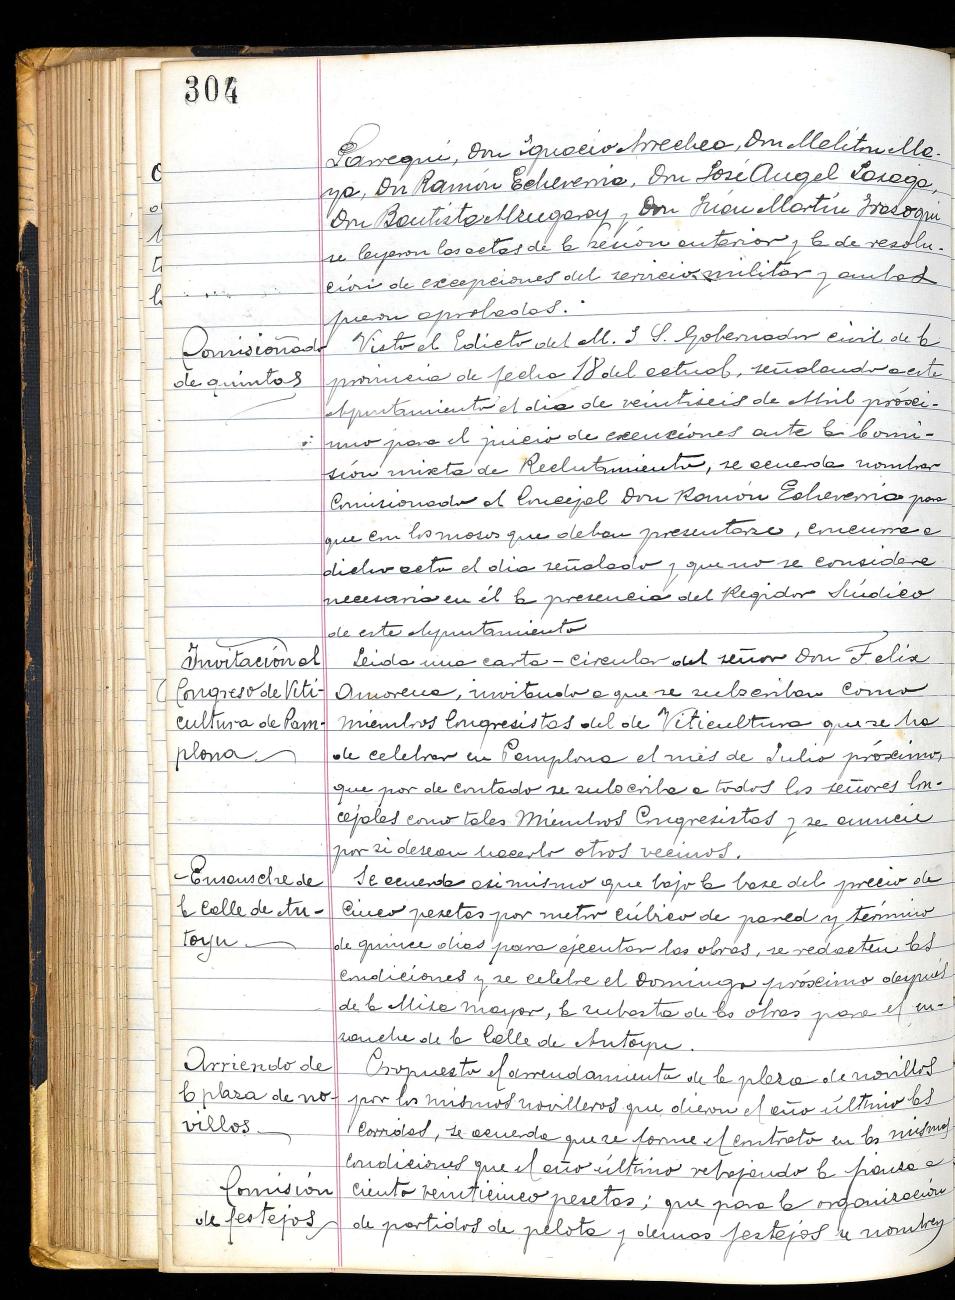 304
Larregui, Don Ignacio Arrechea, Don Meliton Ma-
ya, Don Ramón Echeverria, Don José Angel Lasaga,
Don Bautista Mrugaray y Don Juan Martín Irasoqui
se leyeron las actas de la sesión anterior y la de resolu-
ción de excepciones del servicio militar y ambas
fueron aprobadas.
Comisionado
de quintas
Visto el Edicto del M. I S. Gobernador civil de la
provincia de fecha 18 del actual, señalando a este
Ayuntamiento el dia de veintiseis de Abril próxi-
mo para el juicio de exenciones ante la Comi-
sión mixta de Reclutamiento, se acuerda nombrar
Comisionado al Concejal Don Ramón Echeverria para
que con los mosos que deban presentarse, concurra a
dicho acto el dia señalado y que no se considera
necesaria en él la presencia del Regidor Síndico
de este Ayuntamiento
Invitación al
Congreso de Viti-
cultura de Pam-
plona.
Leida una carta-circular del señor Don Felix
Amorena, invitando a que se subscriban como
miembros Congresistas del de Viticultura que se ha
de celebrar en Pamplona el mes de Julio próximo,
que por de contado se subscriba a todos los señores Con-
cejales como tales Miembros Congresistas y se anuncie
por si desean hacerlo otros vecinos.
Ensansche de
la calle de An-
toyu
Se acuerda asimismo que bajo la base del precio de
cinco pesetas por metro cúbico de pared y término
de quince dias para ejecutar las obras, se redacten las
condiciones y se celebre el Domingo próximo después
de la Misa mayor, la subasta de las obras para el en-
sanche de la Calle de Antoyu.
Arriendo de
la plaza de no-
villos
Propuesto el arrendamiento de la plaza de novillos
por los mismos novilleros que dieron el año último las
corridas, se acuerda que se forme el contrato en las mismas
condiciones que el año último rebajando la fianza a
Comisión
de festejos
ciento veinticinco pesetas; que para la organización
de partidos de pelota y demas festejos se nombren